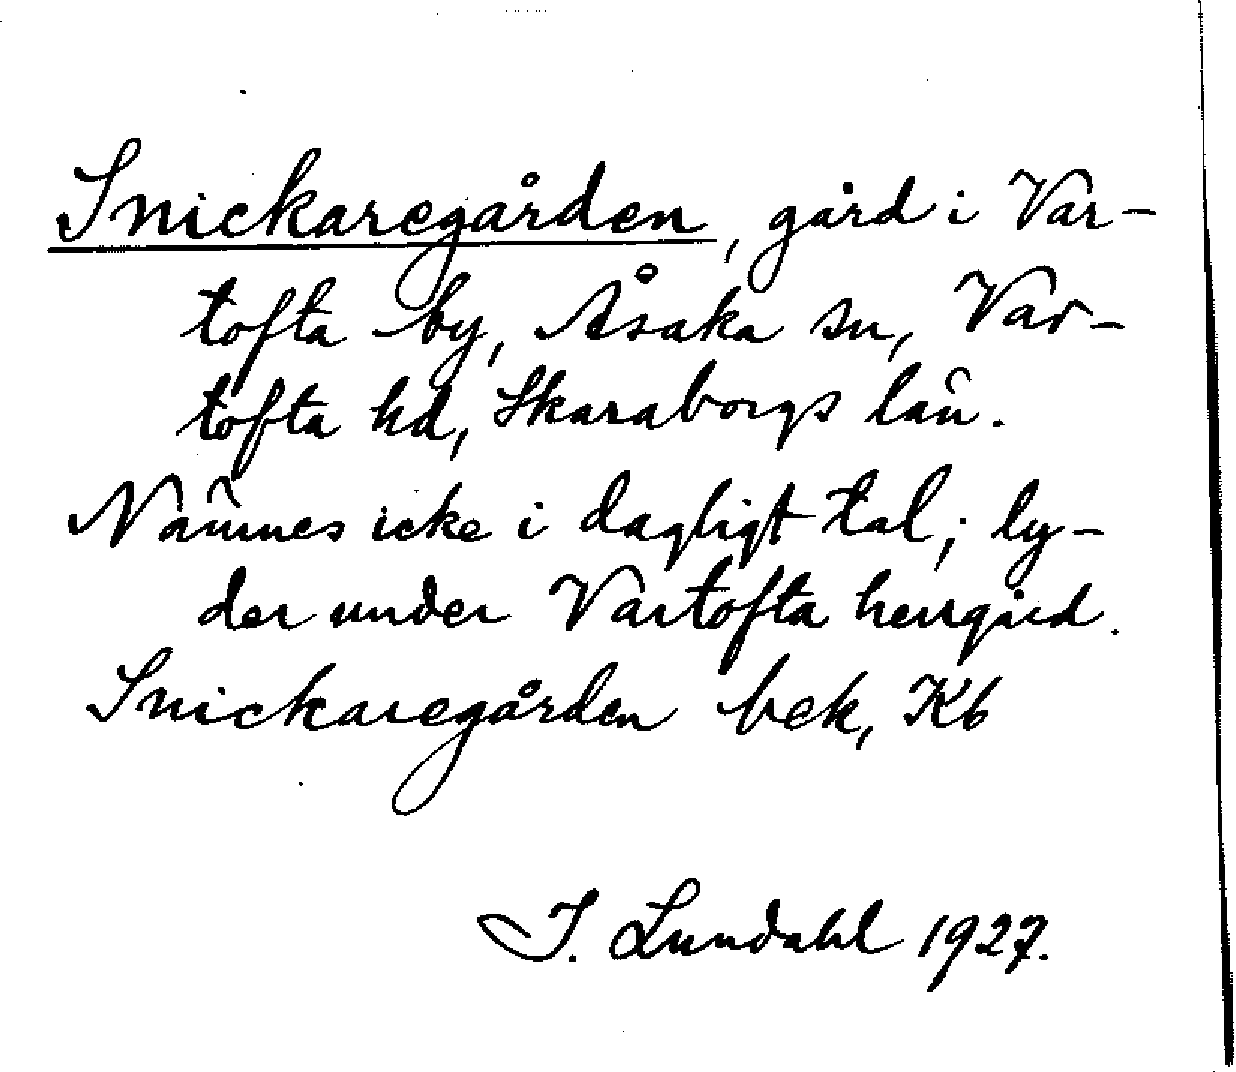 Snickaregården, gård i Var-
tofta by, Åsaka sn, Var-
tofta hd, Skaraborgs län.
Nämnes icke i dagligt tal; ly-
der under Vartofta herrgård.
Snickaregården bek, Kb
I. Lundahl 1927.